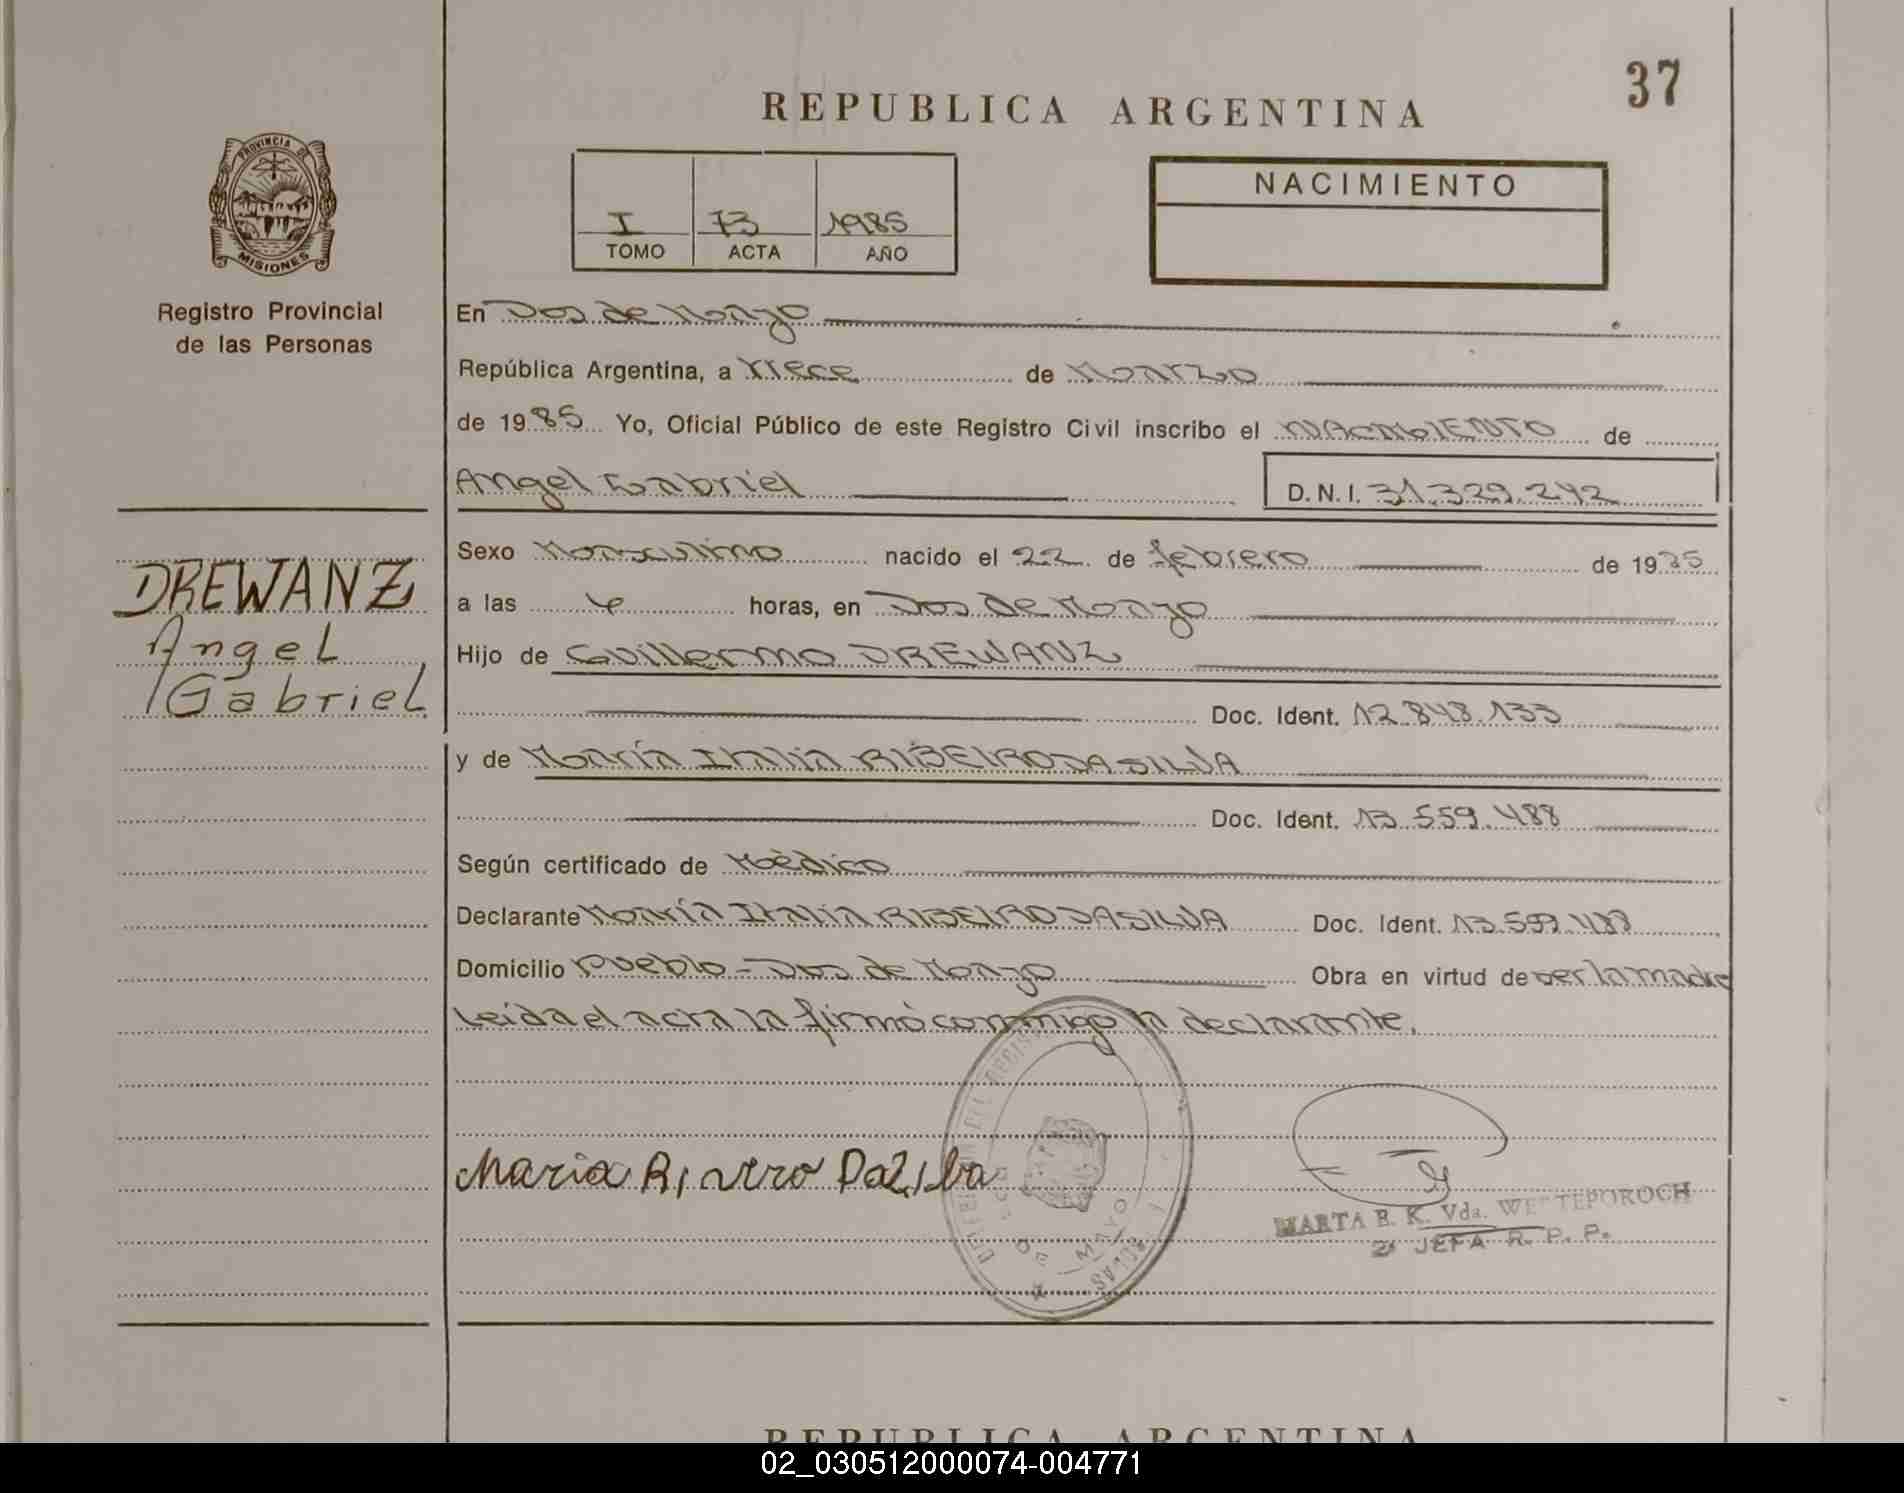 37
REPUBLICA ARGENTINA
PROVINCIA DE
MISIONES
Registro Provincial
de las Personas
I 73 1985
TOMO ACTA AÑO
NACIMIENTO
En Dos de Mayo
República Argentina, a trece de Marzo
de 1985 Yo, Oficial Público de este Registro Civil inscribo el NACIMIENTO de
Angel Gabriel D.N.I. 31.329.242
DREWANZ
Angel
Gabriel
Sexo Masculino nacido el 22 de febrero de 1985
a las 4 horas, en Dos de Mayo
Hijo de Guillermo DREWANZ
Doc. Ident. 12.848.133
y de María Italia RIBEIRO DA SILVA
Doc. Ident. 13.559.488
Según certificado de Médico
Declarante María Italia RIBEIRO DA SILVA Doc. Ident. 13.599.488
Domicilio Pueblo - Dos de Mayo Obra en virtud de ser la madre
Leída el acta la firmó conmigo la declarante.
Maria Rivero Dalilba
DE MAYO
MARTA E. K. Vda. WESTEPOROCH
JEFA R. P. P.
REPUBLICA ARGENTINA
02_030512000074-004771